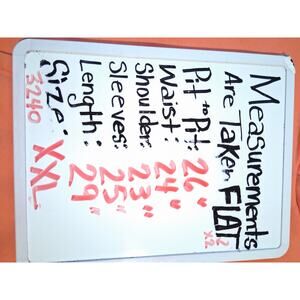 Measurements
Are Taken FLAT
x2
x2
Pit to Pit: 26"
Waist: 24"
Shoulder: 23"
Sleeves: 25"
Length: 29"
Size: XXL
3240